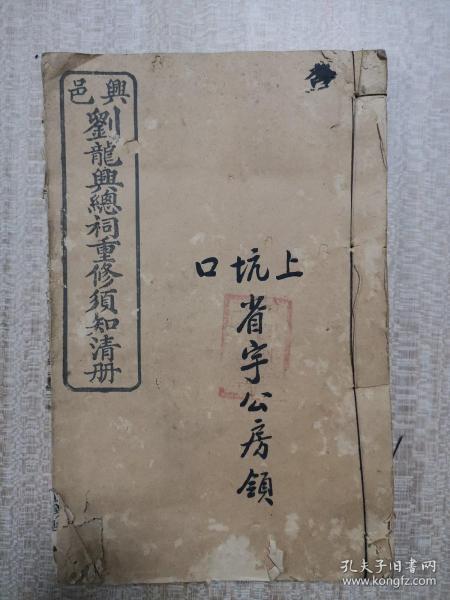 興邑
劉龍興總祠重修須知清册
上坑口
省宇公房領
孔夫子旧書网
www.kongfz.com